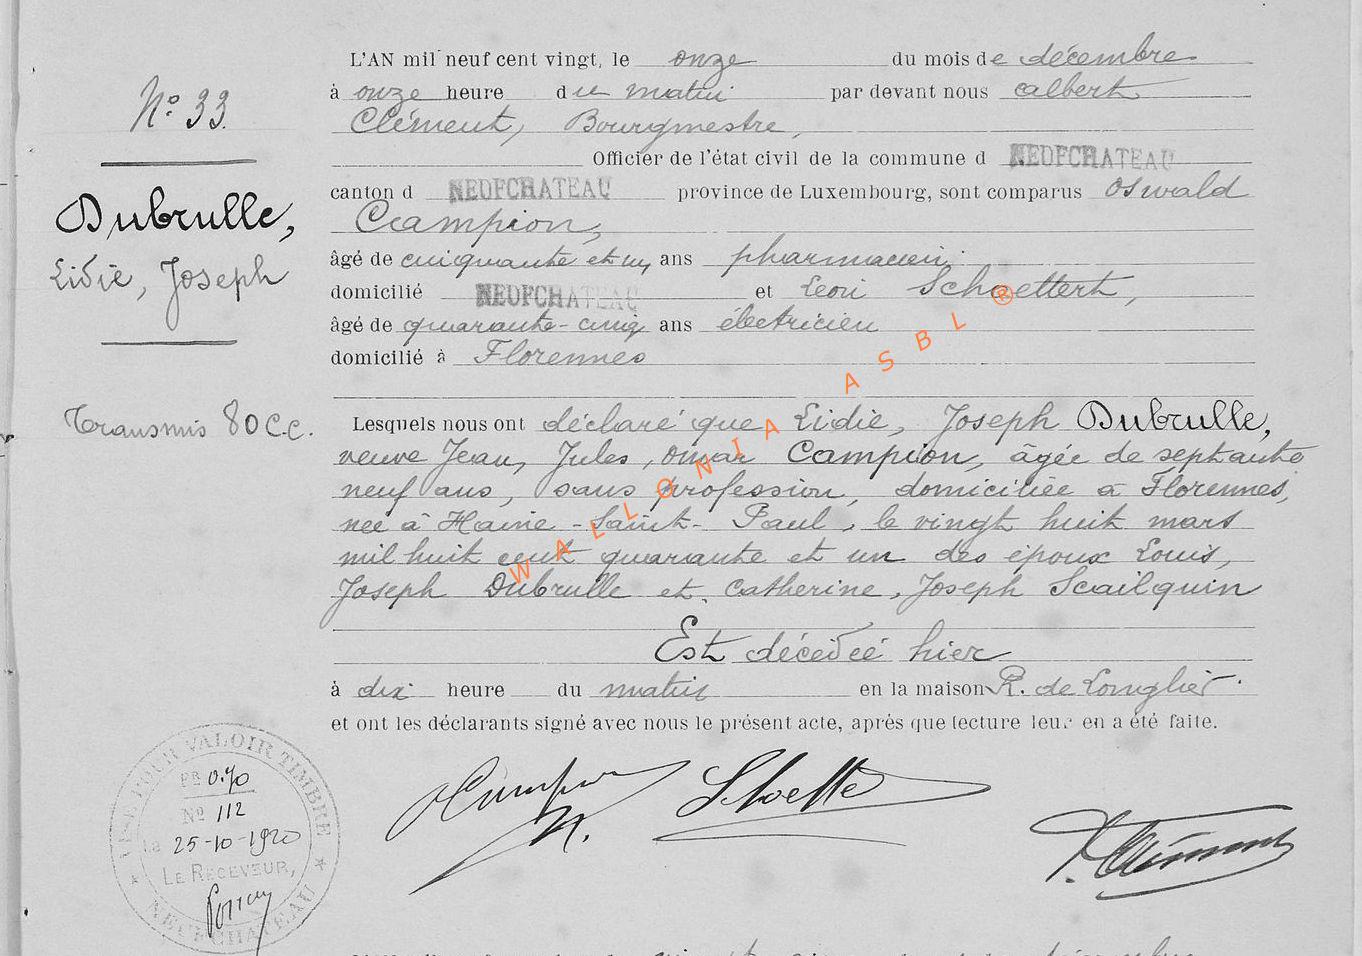 L'AN mil neuf cent vingt, le onze du mois de décembre
à onze heure du matin par devant nous Albert
Clément, Bourgmestre,
Officier de l'état civil de la commune d NEUFCHATEAU
canton d NEUFCHATEAU province de Luxembourg, sont comparus Oswald
Campion,
âgé de cinquante et un ans pharmacien
domicilié NEUFCHATEAU et Léon Schoettert,
âgé de quarante-cinq ans électricien
domicilié à Florennes
N° 33.
Dubrulle,
Lidie, Joseph
Transmis 80 C.C.
Lesquels nous ont déclaré que Lidie, Joseph Dubrulle,
veuve Jean, Jules, Omar Campion, âgée de septante
neuf ans, sans profession, domiciliée à Florennes,
née à Haine-Saint-Paul, le vingt huit mars
mil huit cent quarante et un des époux Louis,
Joseph Dubrulle et Catherine, Joseph Scailquin
Est décédée hier
à dix heure du matin en la maison R. de Longlier.
et ont les déclarants signé avec nous le présent acte, après que lecture leur en a été faite.
WALLONIA ASBL ®
VISÉ POUR VALOIR TIMBRE
FR 0.70
N° 112
la 25-10-1920
LE RECEVEUR,
NEUFCHATEAU